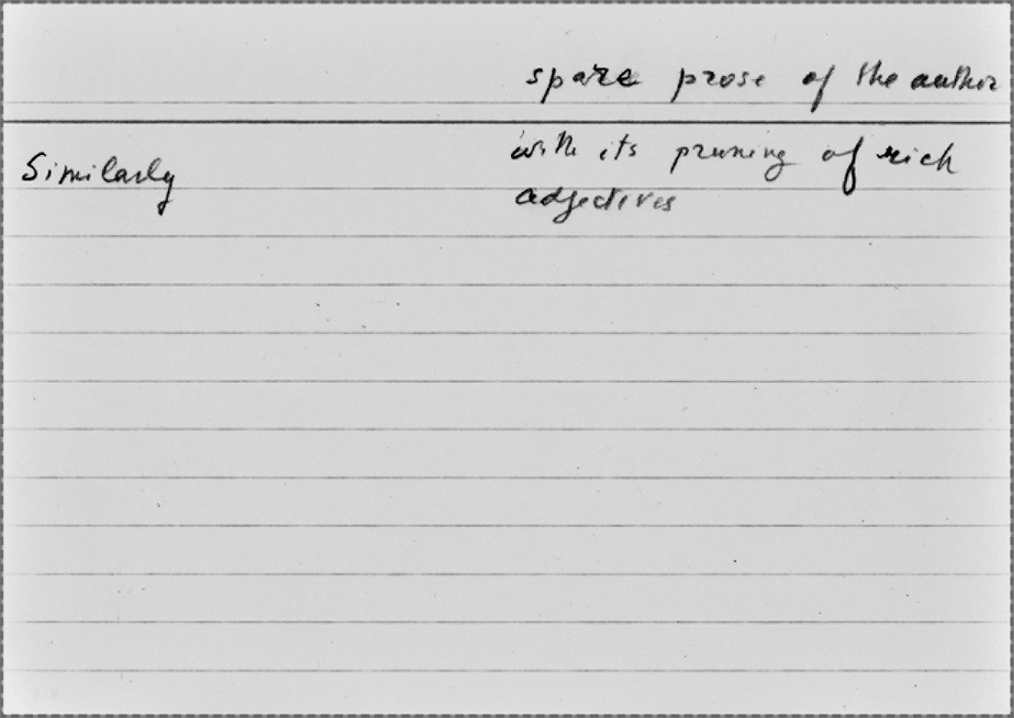 spare prose of the author
with its pruning of rich
Similarly
adjectives